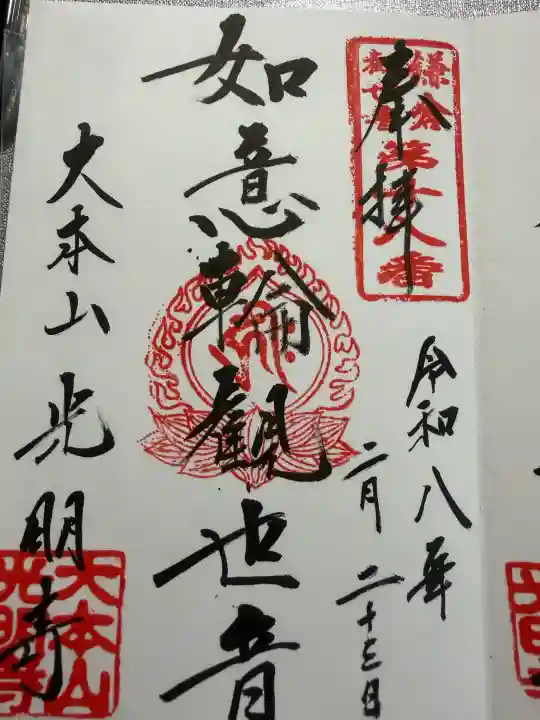 奉拝
令和八年
二月二十三日
如意輪観世音
大本山光明寺
大本山
光明寺